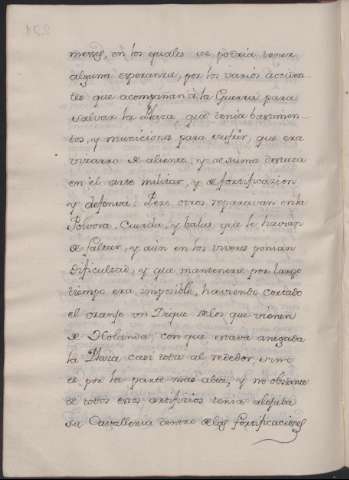 meses, en los quales se podria tener
alguna esperanza, por los varios acciden-
tes que acompañan â la Guerra para
salvar la Plaza, que tenia bastimen-
tos, y municiones para sufrir, que era
vizarro de aliento, y de suma destreza
en el arte militar, y de fortificazion
y defensa: Pero otros reparavan en la
Polvora, Cuerda, y balas que le havian
de faltar, y aún en los viveres ponian
dificultad, y que mantenerse por largo
tiempo era imposible, haviendo cortado
el oranje un Dique de los que vienen
de Holanda, con que estava anegada
la Plaza casi toda al rededor,
por la parte mas alta, y no obstante
de todos estos artificios tenia alojada
su Cavalleria dentro de las fortificaciones